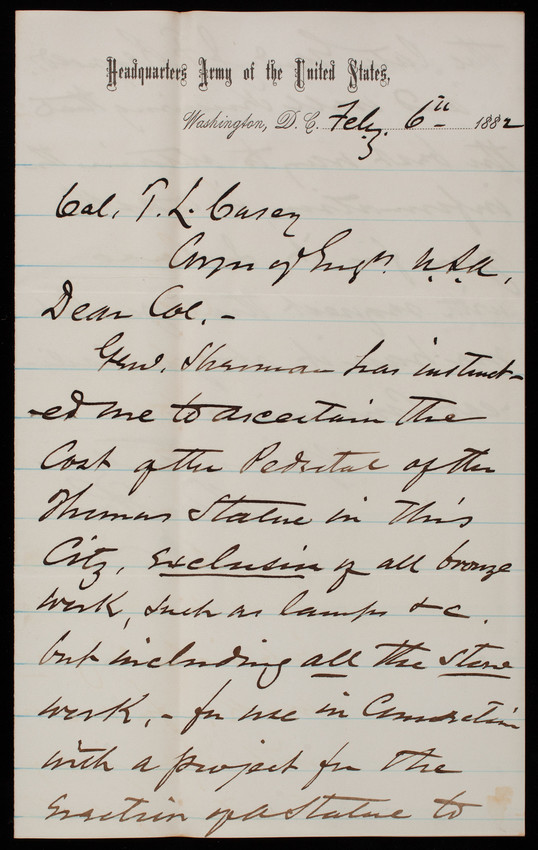 Headquarters Army of the United States,
Washington, D.C. Feby. 6th 1882
Col. T. L. Casey
Corps of Engrs. U.S.A.,
Dear Col. -
Genl. Sherman has instruct-
-ed me to ascertain the
Cost of the Pedestal of the
Thomas Statue in this
City, exclusive of all bronze
work, such as lamps &c.
but including all the Stone
work, - for use in Connection
with a project for the
Erection of a Statue to